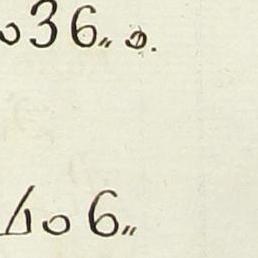 036,, 0.
406,,